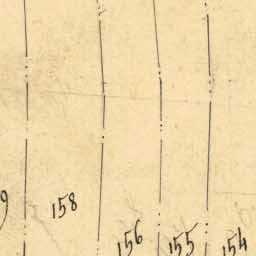 158
156
155
154